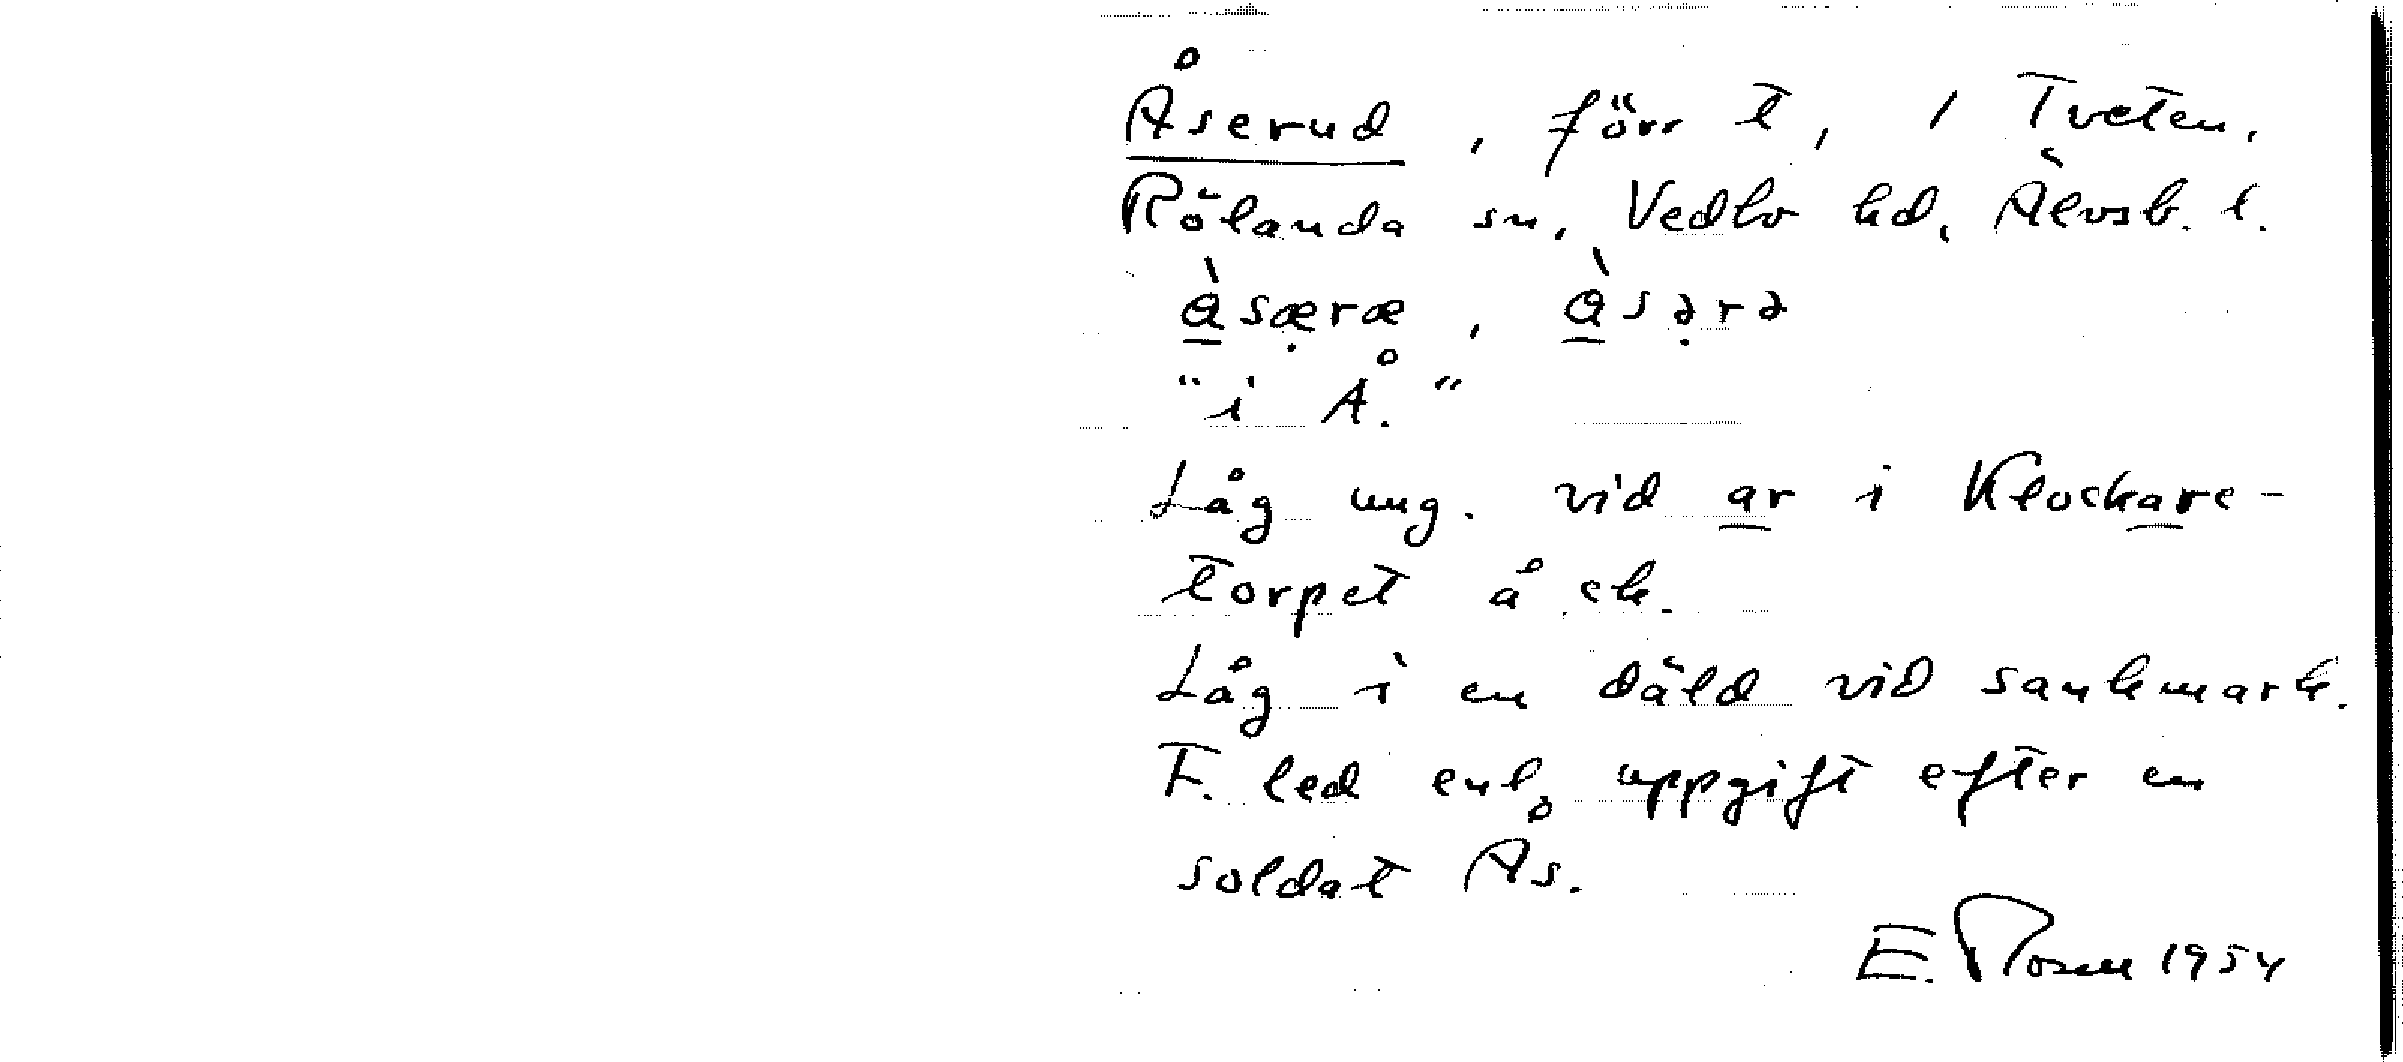 Åserud, förr t, i Tveten,
Rölanda sn, Vedbo hd, Älvsb. l.
ὰsæ̣ræ, ὰsə̣rə
"i Å."
Låg ung. vid ar i Klockare-
torpet å ek.
Låg i en däld vid sankmark.
F. led enl. uppgift efter en
soldat Ås.
E. Rosen 1954